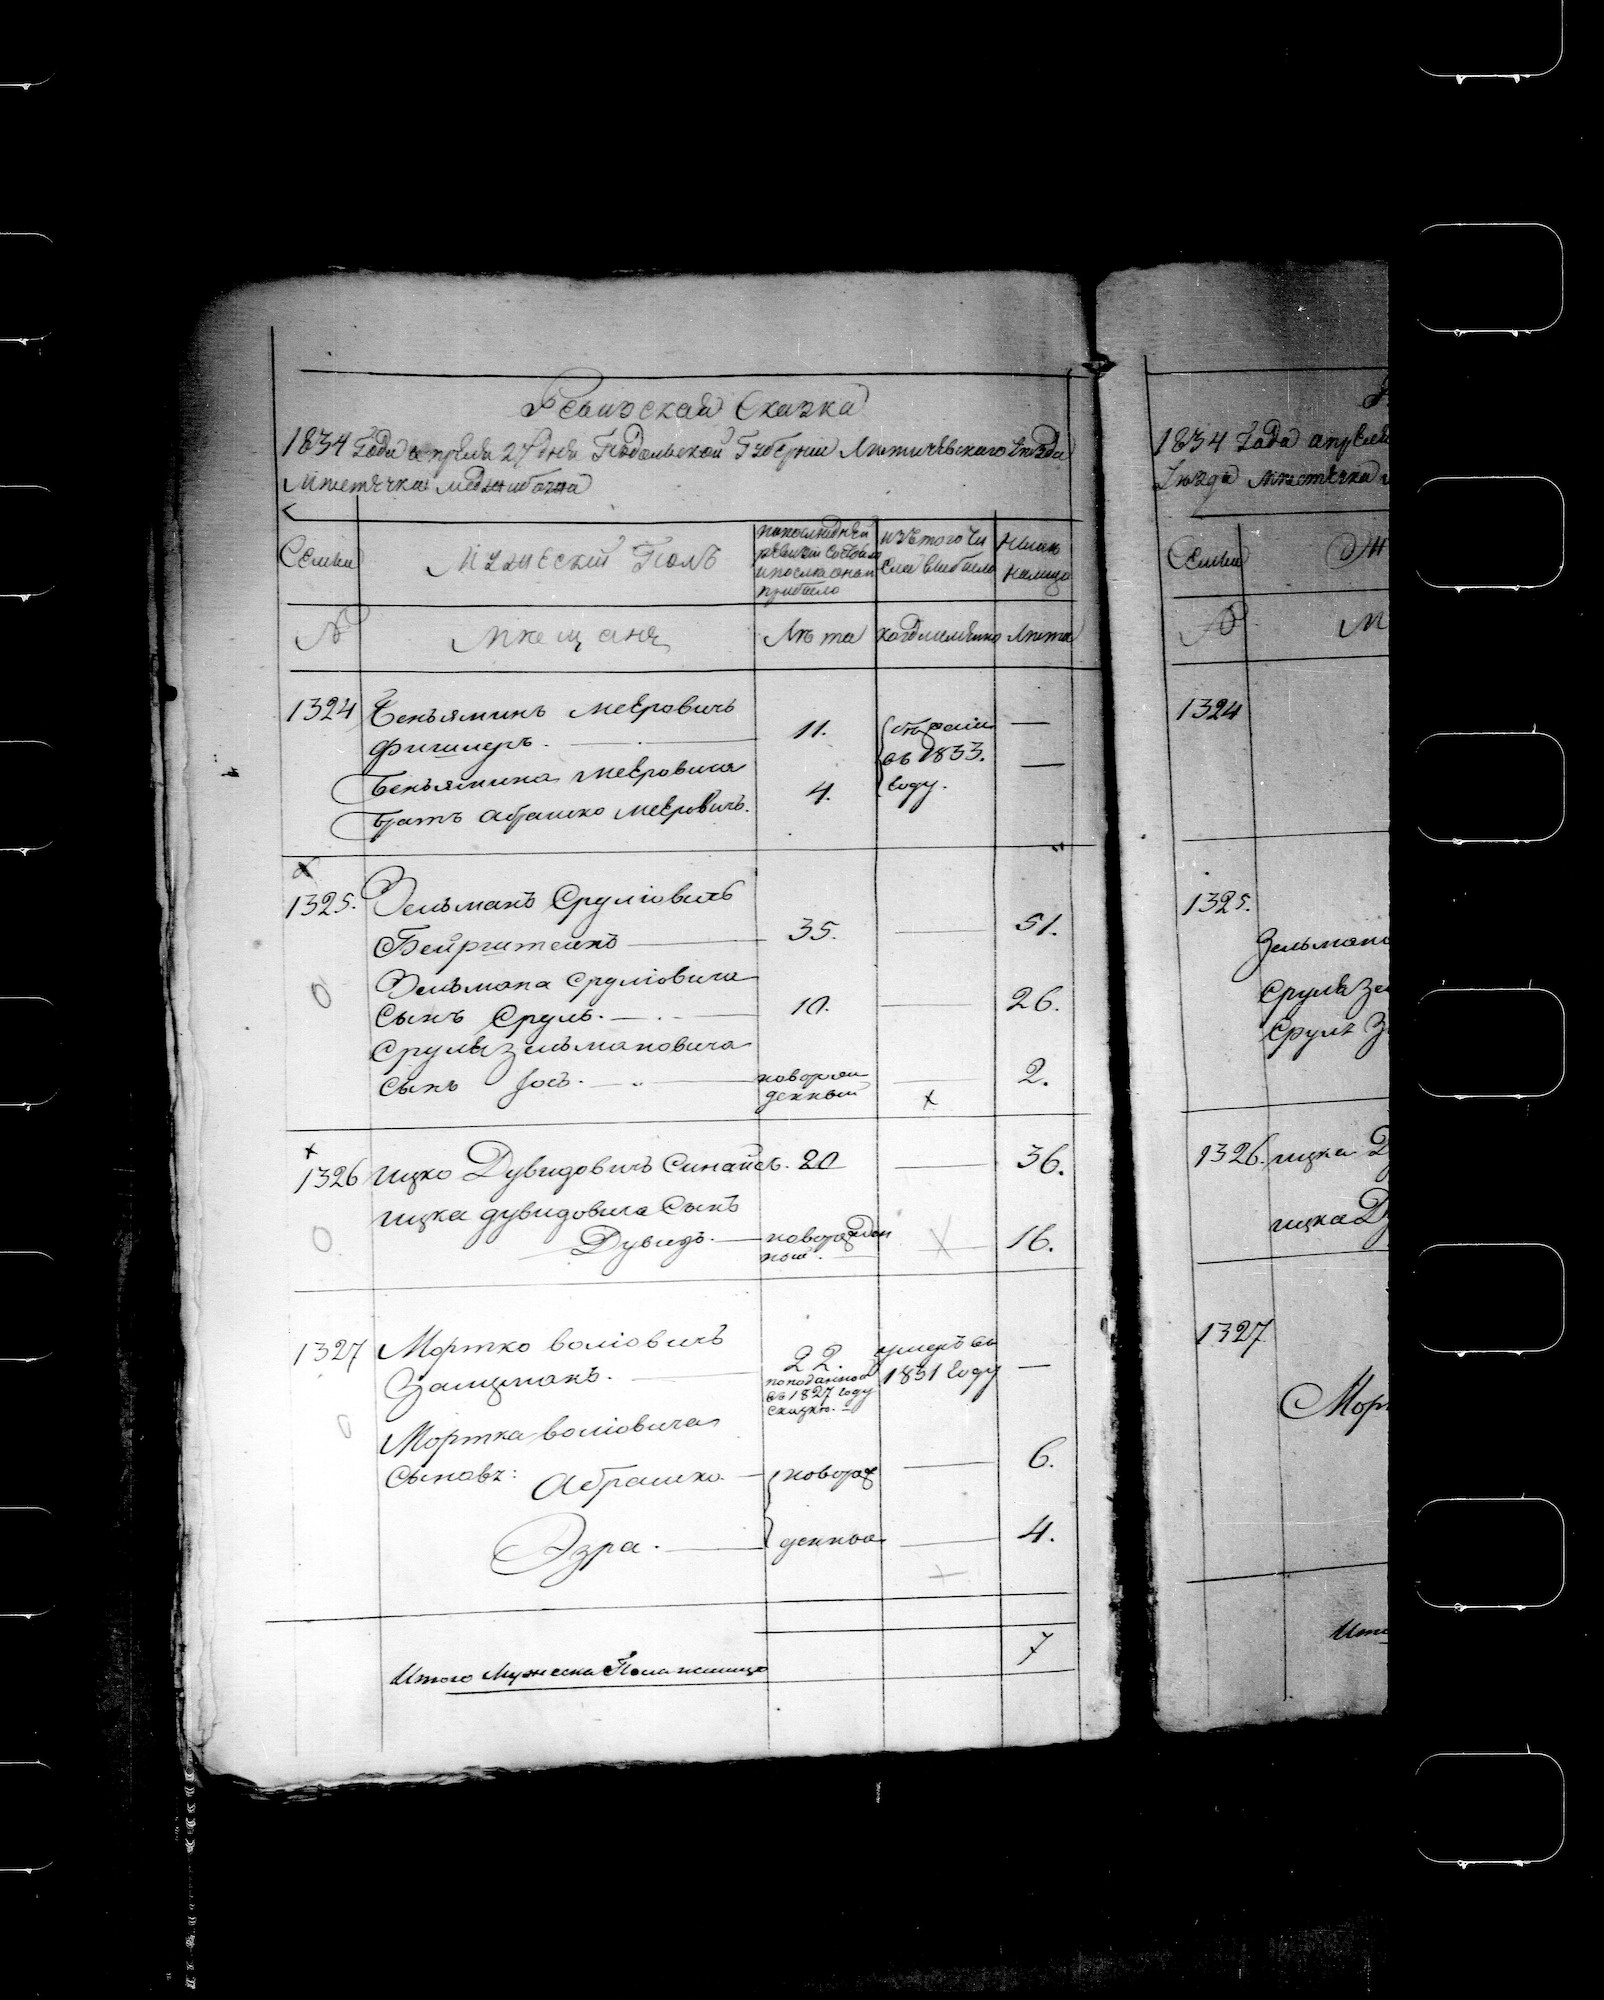 Ревизская Сказка
1834 Года апреля 27 дня Подольской Губернии Литичевскаго Уезда
Местечка Меджибожа
Семьи
Мужеский Полъ
по последней
ревизии состояло
и после оной
прибыло
изъ того чи
сла выбыло
Ныне
налицо
№
Мещане
Лета
когда именно
Лета
1324
Беньяминъ Мееровичь
Фишлеръ.
11.
въ 1833.
году.
—
Беньямина Мееровича
братъ Абрашко Мееровичь.
4.
—
1325.
Зельманъ Сруліовичь
Бейрштейнъ
35.
51.
Зельмана Сруліовича
Сынъ Сруль.
10.
26.
Сруля Зельмановича
Сынъ Іось.
новорож
денный
2.
1326
Ицко Дувидовичъ Синайсъ.
20
36.
Ицка Дувидовича Сынъ
Дувидъ.
новорожден
ной.
16.
1327
Мортко Воліовичъ
Залцманъ.
22.
по поданной
въ 1827 году
сказке.
умеръ въ
1831 году
—
Мортка Воліовича
Сыновъ: Абрашко
новорож
6.
Эзра.
денные
4.
Итого Мужеска Пола налицо
7
1834 Года апреля
Уезда Местечка
Семьи
№
М
1324
1325.
Зельмана
Сруля Зе
Сруля З
1326.
Ицка Д
Ицка Д
1327
Морт
Ито